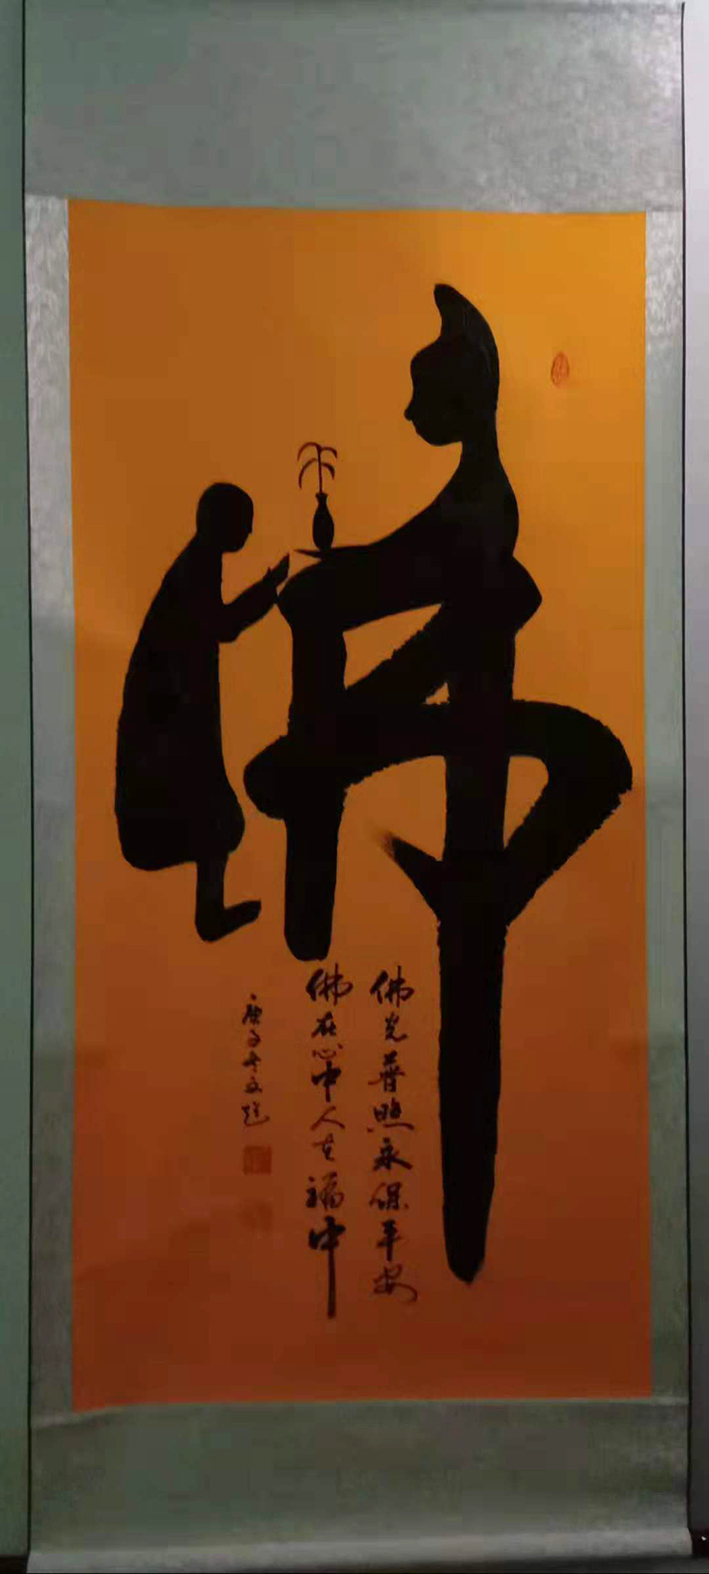 佛
佛光普照永保平安
佛在心中人在福中
庚子冬文题